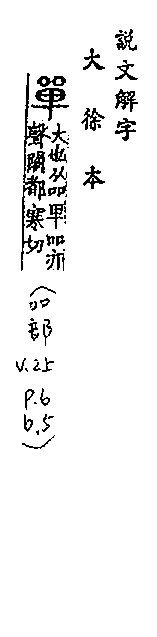 說文解字
大徐本
單
大也从吅甲吅亦
聲闕都寒切
(吅部
V.25
P.6
b.5)